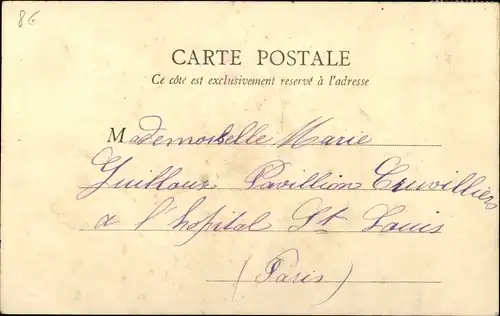 86
CARTE POSTALE
Ce côté est exclusivement reservé à l'adresse
Mademoiselle Marie
Guilloux Pavillion Cruvilliers
a l'hopital St Louis
(Paris)